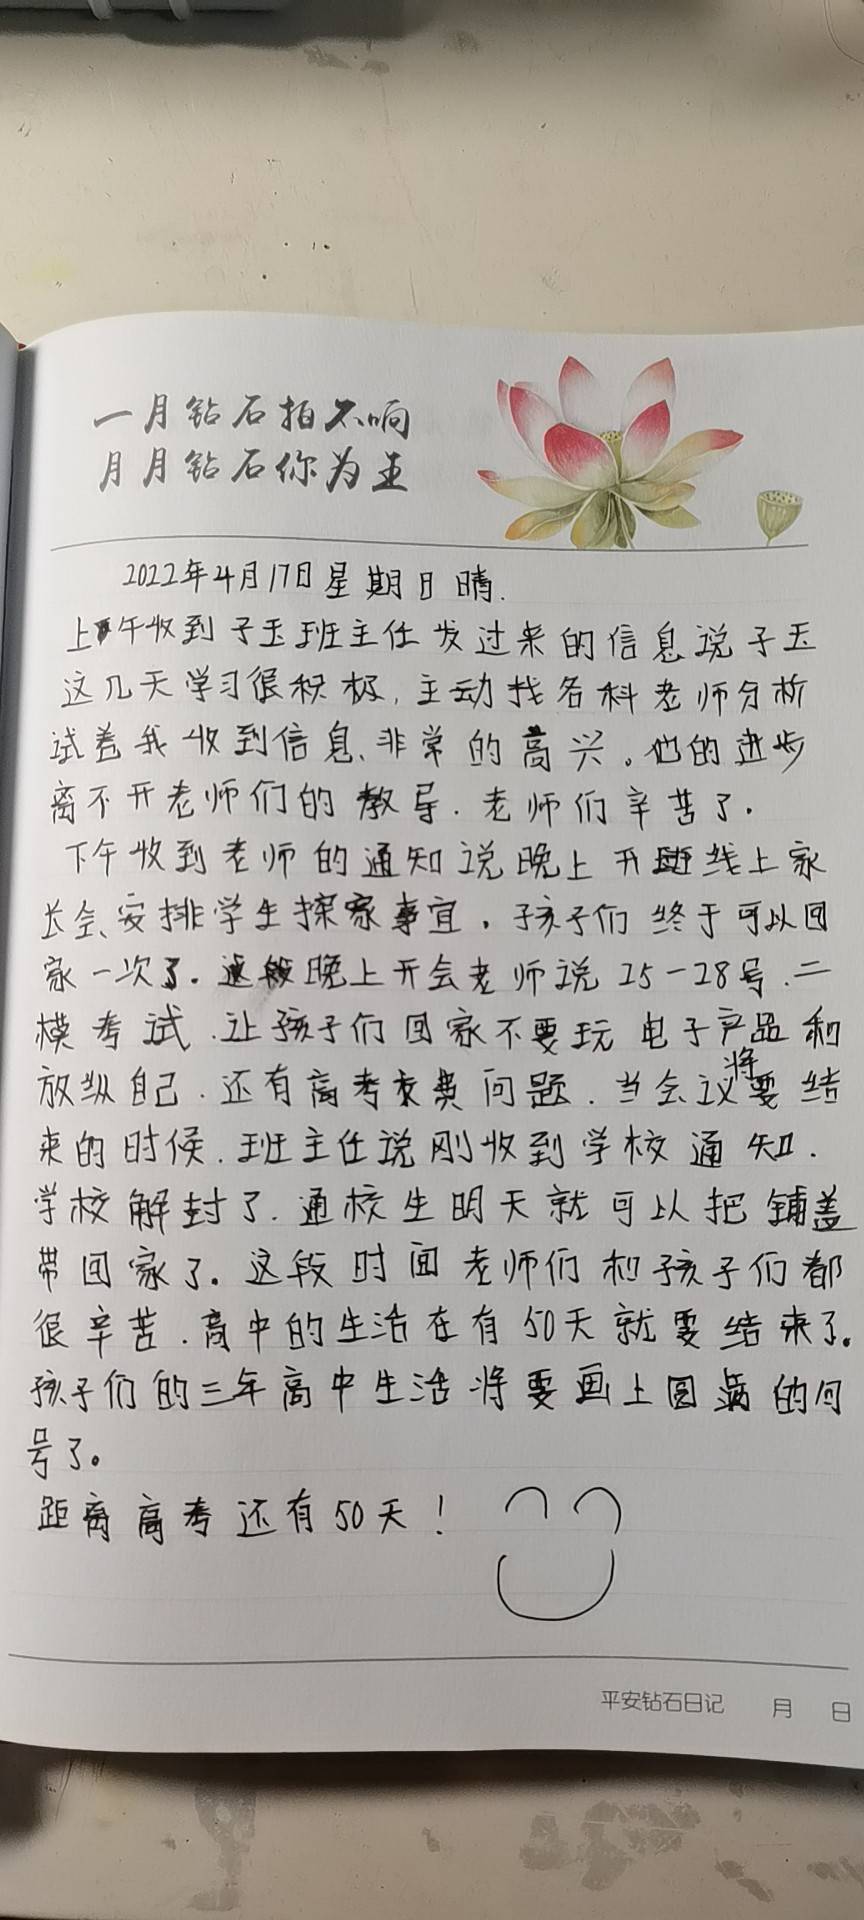 一月钻石拍不响
月月钻石你为王
2022年4月17日星期日晴.
上午收到子玉班主任发过来的信息说子玉
这几天学习很积极,主动找各科老师分析
试卷我收到信息、非常的高兴。他的进步
离不开老师们的教导.老师们辛苦了.
下午收到老师的通知说晚上开线上家
长会、安排学生探家事宜.孩子们终于可以回
家一次了.晚上开会老师说25-28号.二
模考试.让孩子们回家不要玩电子产品和
放纵自己.还有高考交费问题.当会议将要结
束的时候.班主任说刚收到学校通知.
学校解封了.通校生明天就可以把铺盖
带回家了。这段时间老师们和孩子们都
很辛苦.高中的生活在有50天就要结束了。
孩子们的三年高中生活将要画上圆满的句
号了。
距离高考还有50天!
平安钻石日记 月 日